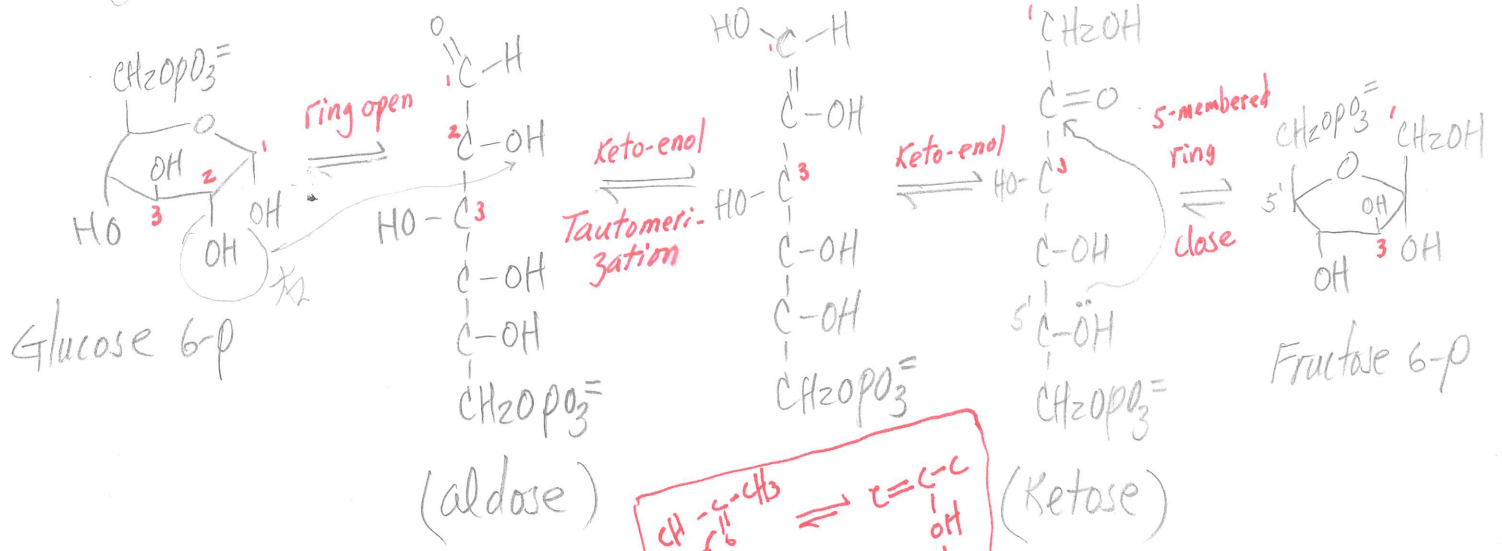 CH2OPO3=
O
OH
HO
OH
OH
1
2
3
Glucose 6-p
ring open
O
1 C-H
2 C-OH
HO-C 3
C-OH
C-OH
CH2OPO3=
(aldose)
Keto-enol
Tautomeri-
zation
HO C-H
1
C-OH
HO-C 3
C-OH
C-OH
CH2OPO3=
Keto-enol
1 CH2OH
C=O
HO-C 3
C-OH
5 C-ÖH
CH2OPO3=
(Ketose)
5-membered
ring
close
CH2OPO3= 1 CH2OH
O
5
OH
3
OH
OH
Fructose 6-p
CH-C-CH3
C=C-C
OH